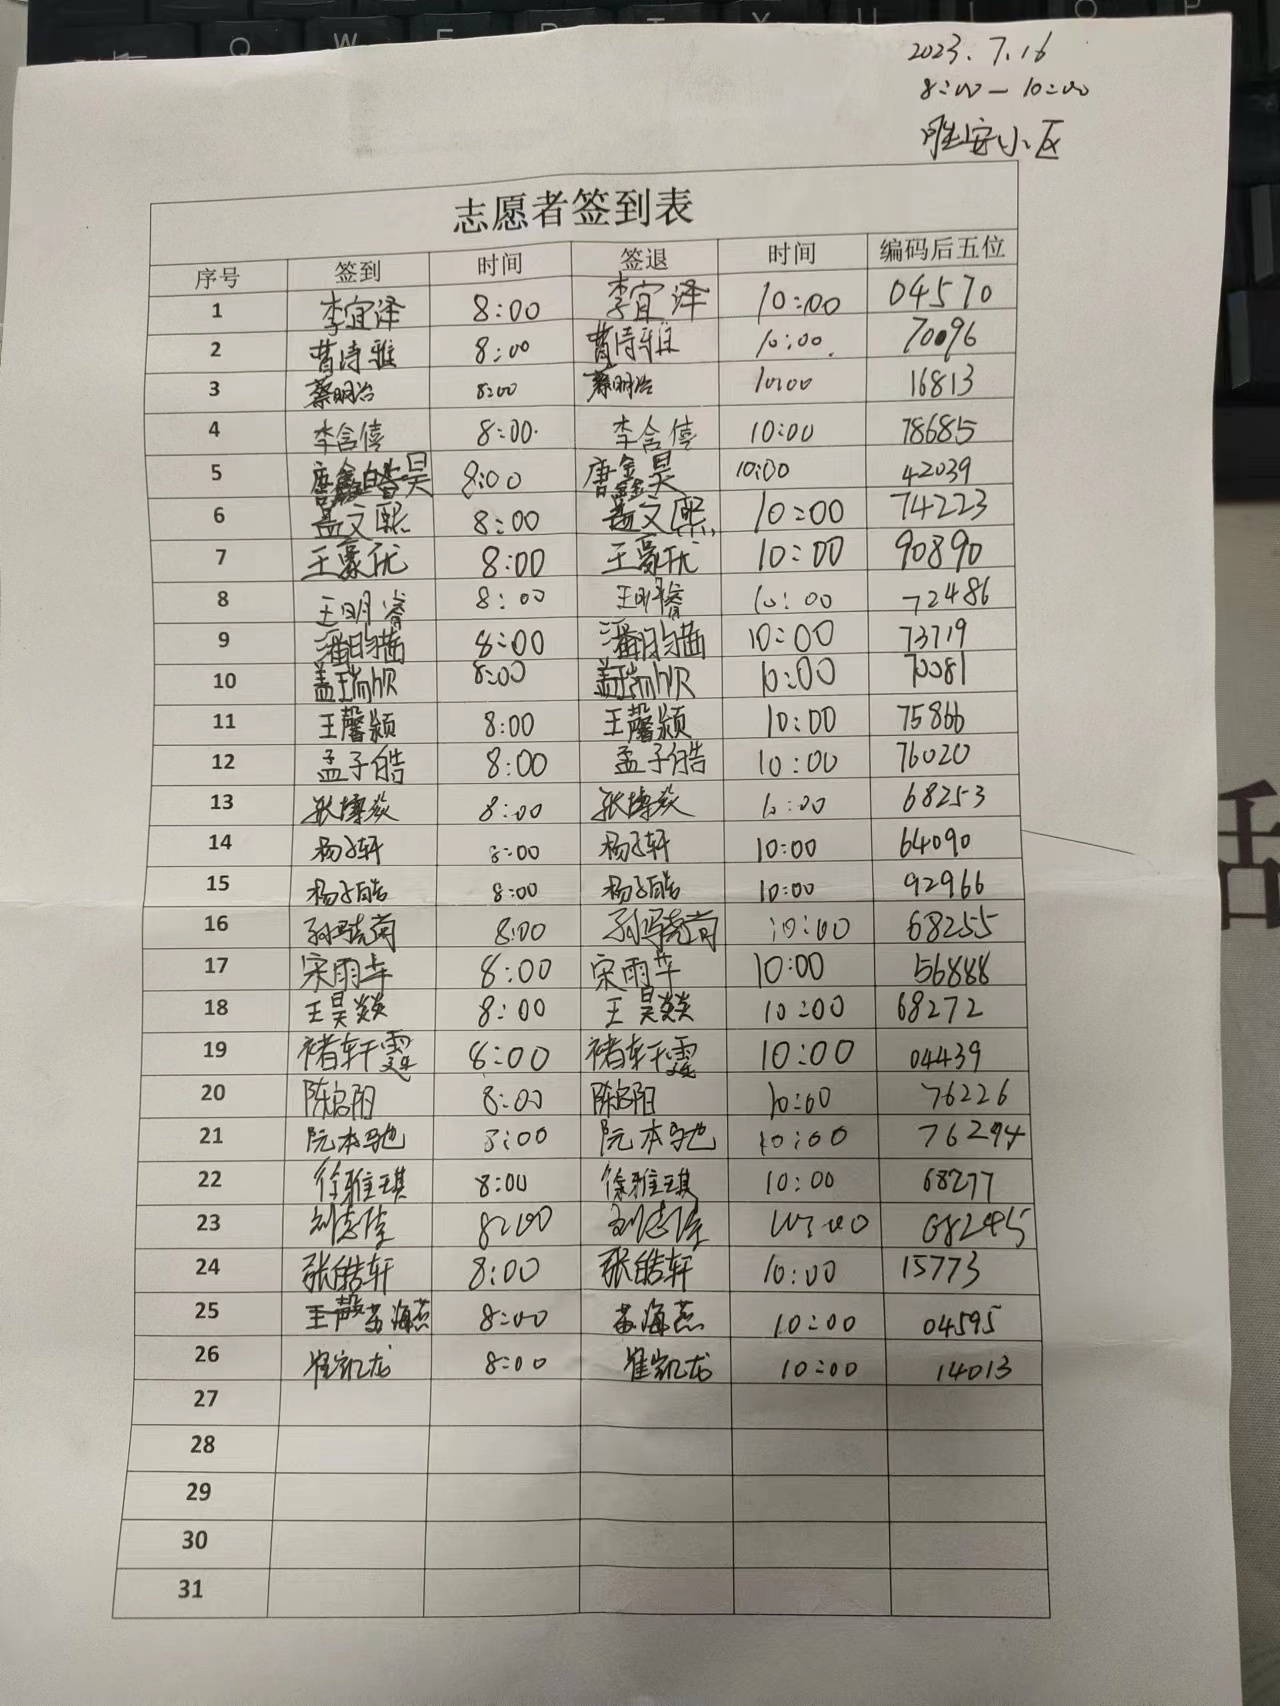 2023.7.16
8:00-10:00
胜安小区
志愿者签到表
序号 签到 时间 签退 时间 编码后五位
1 李宜泽 8:00 李宜泽 10:00 04570
2 曹诗雅 8:00 曹诗雅 10:00 70096
3 蔡明治 8:00 蔡明治 10:00 16813
4 李含僖 8:00 李含僖 10:00 78685
5 8:00 唐鑫昊 10:00 42039
6 孟文熙 8:00 孟文熙 10:00 74223
7 王豪抗 8:00 王豪抗 10:00 90890
8 王明睿 8:00 王明睿 10:00 72486
9 潘昀茜 8:00 潘昀茜 10:00 73719
10 盖瑞 8:00 盖瑞 10:00 70081
11 王馨颍 8:00 王馨颍 10:00 75866
12 孟子皓 8:00 孟子皓 10:00 76020
13 张博焱 8:00 张博焱 10:00 68253
14 杨子轩 8:00 杨子轩 10:00 64090
15 杨子皓 8:00 杨子皓 10:00 92966
16 孙骁菂 8:00 孙骁菂 10:00 68255
17 宋雨芈 8:00 宋雨芈 10:00 56888
18 王昊燚 8:00 王昊燚 10:00 68272
19 褚轩霆 8:00 褚轩霆 10:00 04439
20 陈启阳 8:00 陈启阳 10:00 76226
21 阮本驰 8:00 阮本驰 10:00 76294
22 徐雅琪 8:00 徐雅琪 10:00 68277
23 刘志佳 8:00 刘志佳 10:00 68245
24 张皓轩 8:00 张皓轩 10:00 15773
25 苏海燕 8:00 苏海燕 10:00 04595
26 崔凯龙 8:00 崔凯龙 10:00 14013
27
28
29
30
31